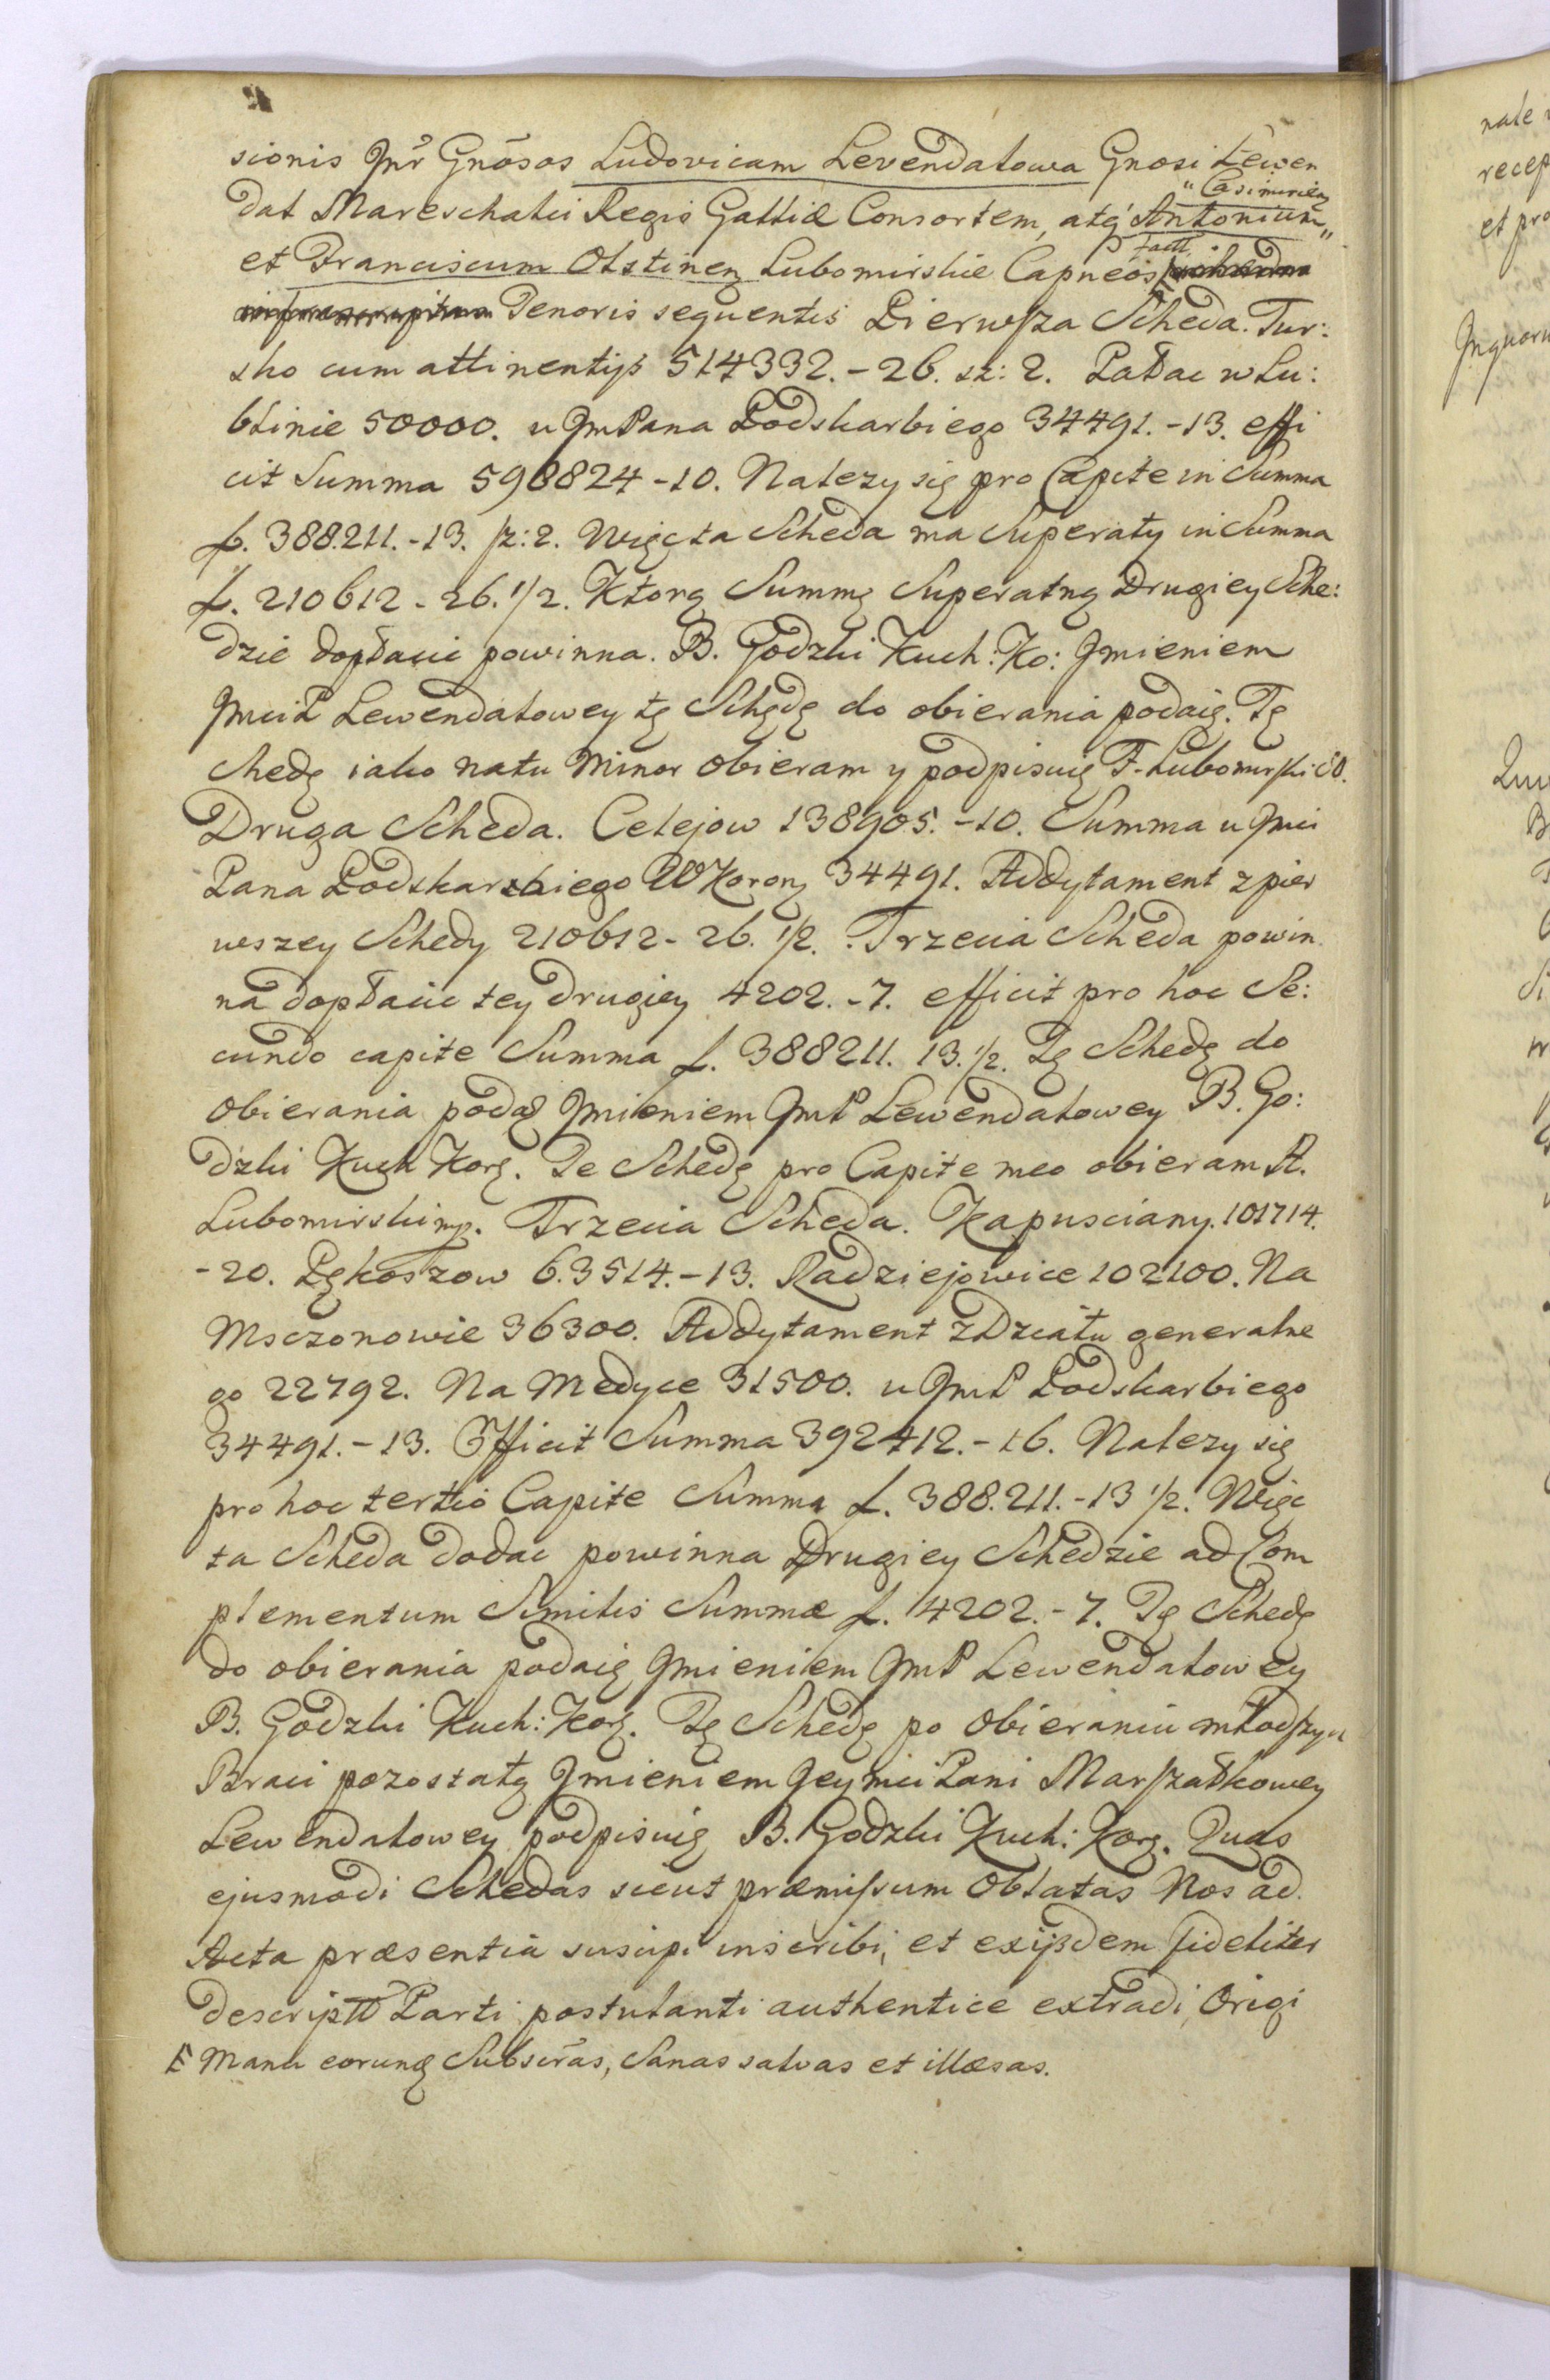 sionis Jnr̃ Gnõsos Ludovicam Levendalowa Gnosi Lewen
" Casimirieñ
dal Mareschalci Regis Galliæ Consortem, atq́ Antonium "
factt
et Franciscum Olstineñ Lubomirskie Capneos
Tenoris sequentis Pierwsza Scheda. Tur:
sko cum attinentijs 514332.-26. sz: 2. Pałac w Lu:
blinie 50000. u JmPana Podskarbiego 34491.-13. effi
cit Summa 598824-10. Nalezy się pro Capite in Summa
f. 388.211.-13. sz: 2. Więc ta Scheda ma Superaty in Summa
f. 210612-26. 1/2. Ktorą Summę Superatną Drugiey Sche:
dzie dopłacić powinna. B. Godzki Kuch: Ko: Jmieniem
JmciP Lewendalowey tę Schedę do obierania podaię. Tę
Schedę iako natu Minor obieram y podpisuię F. Lubomirski SO.
Druga Scheda. Celejow 138905.-10. Summa u Jmci
Pana Podskarbiego W Korony 34491. Addytament z pier
wszey Schedy 210612-26. 1/2. Trzecia Scheda powin
na dopłacić tey drugiey 4202.-7. efficit pro hoc Se:
cundo capite Summa f. 388211. 13. 1/2. Tę Schedę do
Obierania podaę Jmieniem JmP Lewendalowey B. Go:
dzki Kuch Korĝ. Te Schedę pro Capite meo obieram A.
Lubomirski mp. Trzecia Scheda. Kapusciany. 101714.
-20. Pękoszow 6.3514.-13. Radziejowice 102100. Na
Msczonowie 36300. Addytament z Działu generalne
go 22792. Na Medyce 31500. u JmP Podskarbiego
34491.-13. Efficit Summa 392412.-16. Nalezy się
pro hoc tertio Capite Summa f. 388.211.-13 1/2. Więc
ta Scheda dodac powinna Drugiey Schedzie ad Com
plementum Similis Summæ f. 4202.-7. Tę Schedę
do obierania podaię Jmieniem JmP Lewendalowey
B. Godzki Kuch: Korĝ. Tę Schedę po Obieraniu młodszych
Braci pozostałą Jmieniem Jeymci Pani Marszałkowey
Lewendalowey podpisuię B. Godzki Kuch: Korĝ. Quas
ejusmodi Schedas sicut præmissum Oblatas Nos ad
Acta præsentia suscipi inscribi, et exijsdem fideliter
descriptt Parti postulanti authentice extradi, Origi
F Manu eorundĝ Subscr̃as, Sanas salvas et illæsas.
nale
recep
et pro
Jnquoru